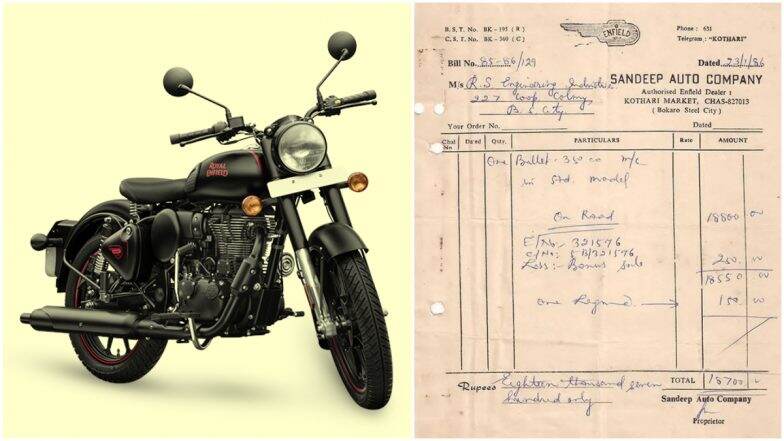 ROYAL
ENFIELD
B. S. T. No. BK - 195 ( R )
C. S. T. No. BK - 360 ( C )
ENFIELD
Phone : 631
Telegram : "KOTHARI"
Bill No. 85-86/129
Dated 23/1/86
M/s R.S. Engineering Industries
SANDEEP AUTO COMPANY
227 Coop. Colony,
Authorised Enfield Dealer :
B. S. City
KOTHARI MARKET, CHAS-827013
( Bokaro Steel City )
Your Order No.
Dated
Chal No Dated Qnty. PARTICULARS Rate AMOUNT
One Bullet 350 cc m/c
in Std. model
On Road 18800 00
E/No.- 321576
C/No:- 5B/321576 250 00
Less:- Bonus Sale
18550 00
One 150 00
TOTAL 18700
Rupees Eighteen thousand seven
hundred only
Sandeep Auto Company
Proprietor